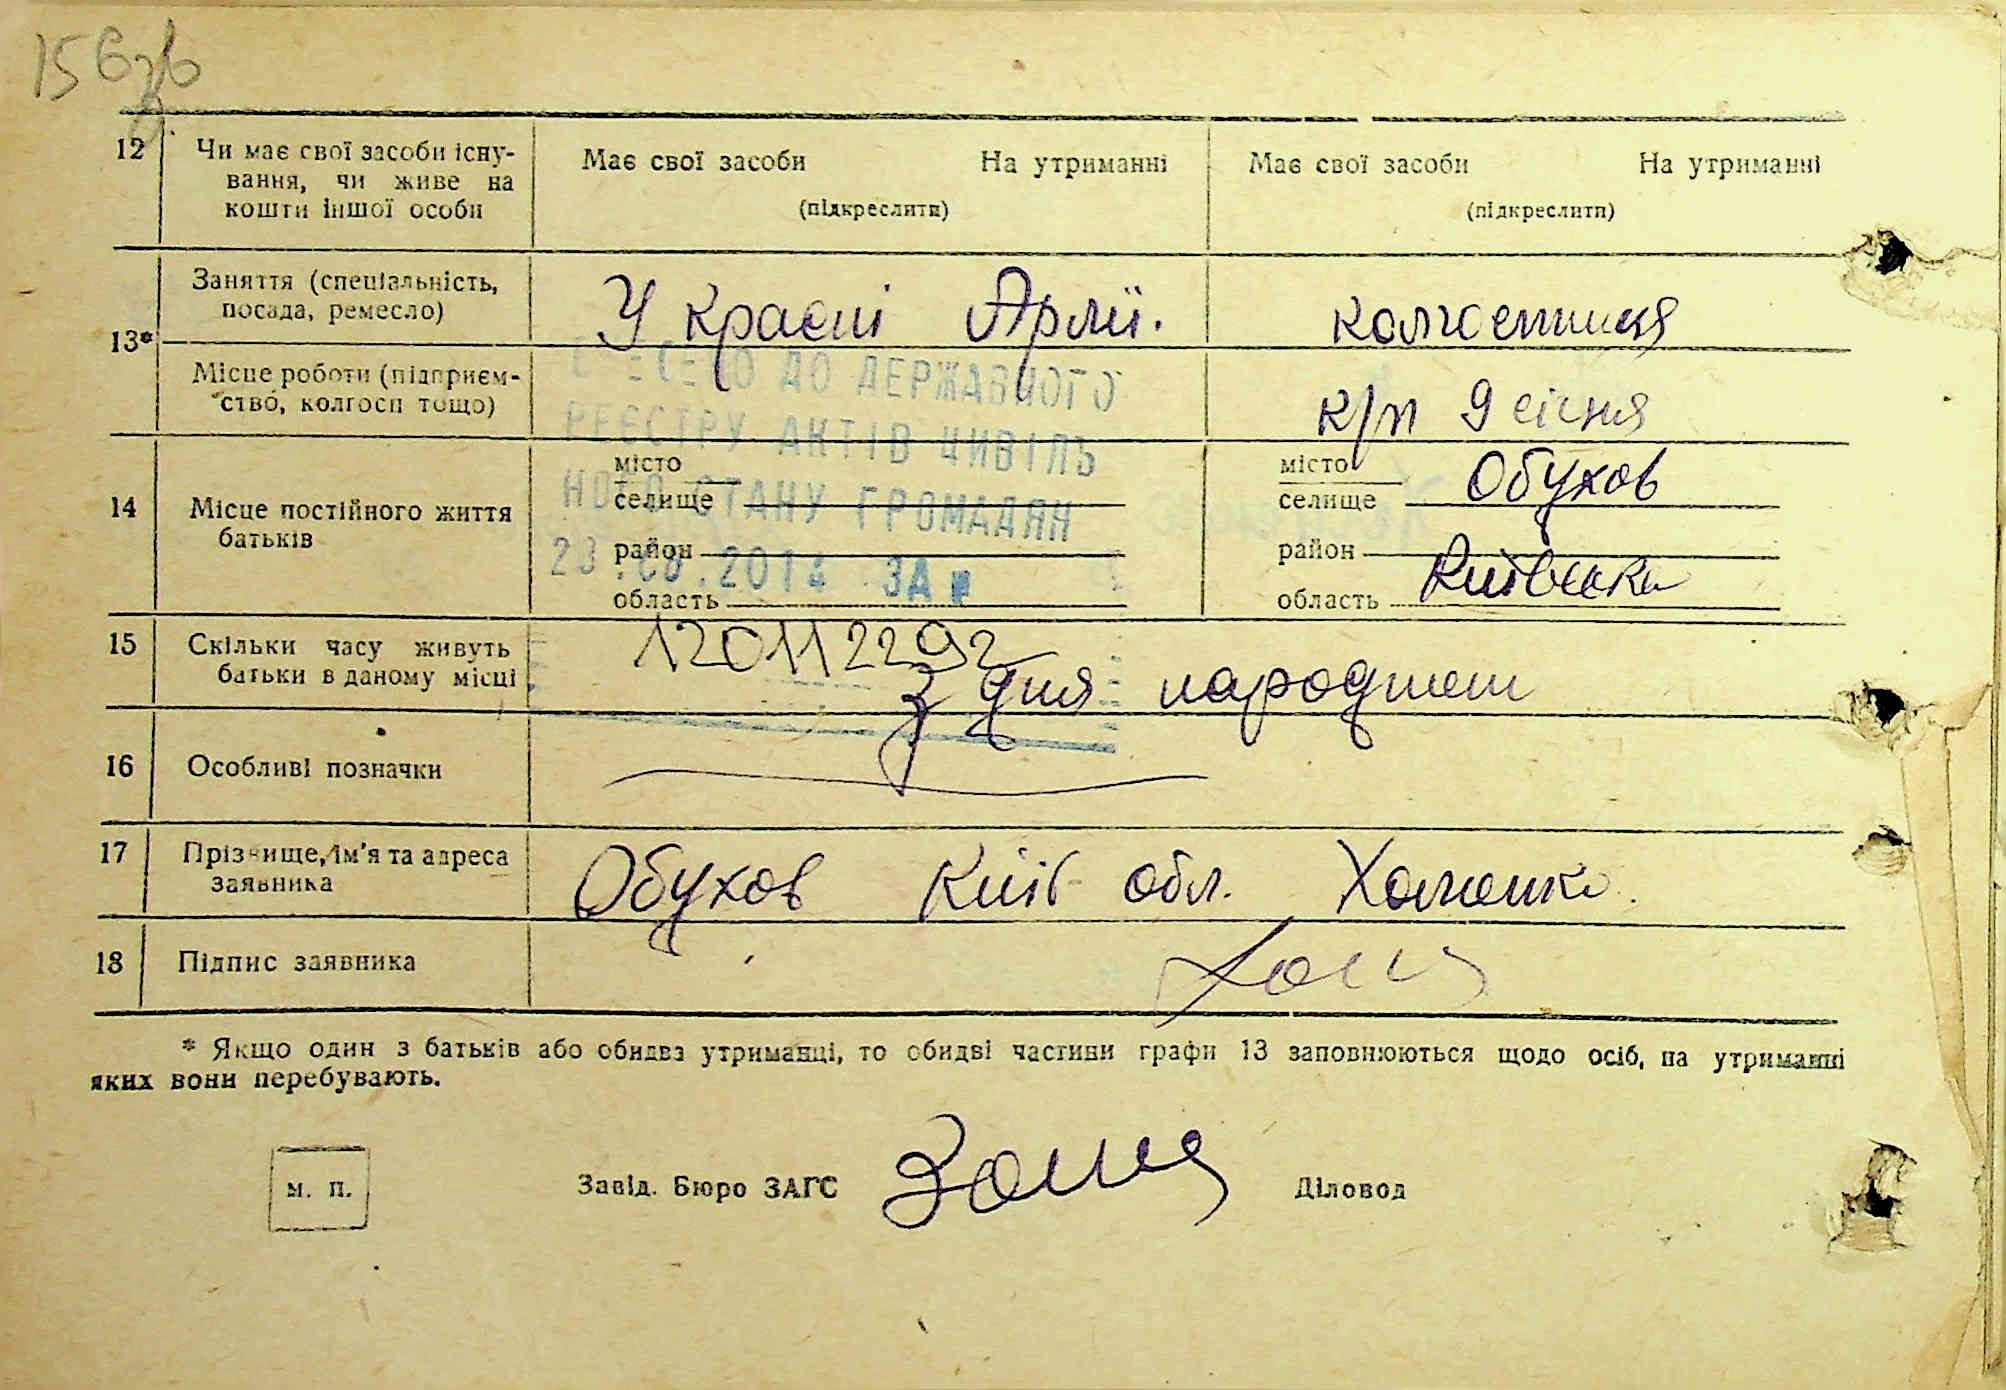 156зв
12 Чи має свої засоби існу-
вання, чи живе на
кошти іншої особи
Має свої засоби На утриманні
(підкреслити)
Має свої засоби На утриманні
(підкреслити)
13*
Заняття (спеціальність,
посада, ремесло)
У красні Армії.
колгоспниця
Місце роботи (підприєм-
ство, колгосп тощо)
к/п 9 січня
ВНЕСЕНО ДО ДЕРЖАВНОГО
РЕЄСТРУ АКТІВ ЦИВІЛЬ
НОГО СТАНУ ГРОМАДЯН
ЗА №
12011229
14 Місце постійного життя
батьків
місто
селище
район
область
місто
селище Обухов
район
область Київська
15 Скільки часу живуть
батьки в даному місці
з дня народжен
16 Особливі позначки
17 Прізвище, ім'я та адреса
заявника
Обухов Київ обл. Хоменко.
18 Підпис заявника
* Якщо один з батьків або обидва утриманці, то обидві частини графи 13 заповнюються щодо осіб, на утриманні
яких вони перебувають.
м. п.
Завід. Бюро ЗАГС
Діловод